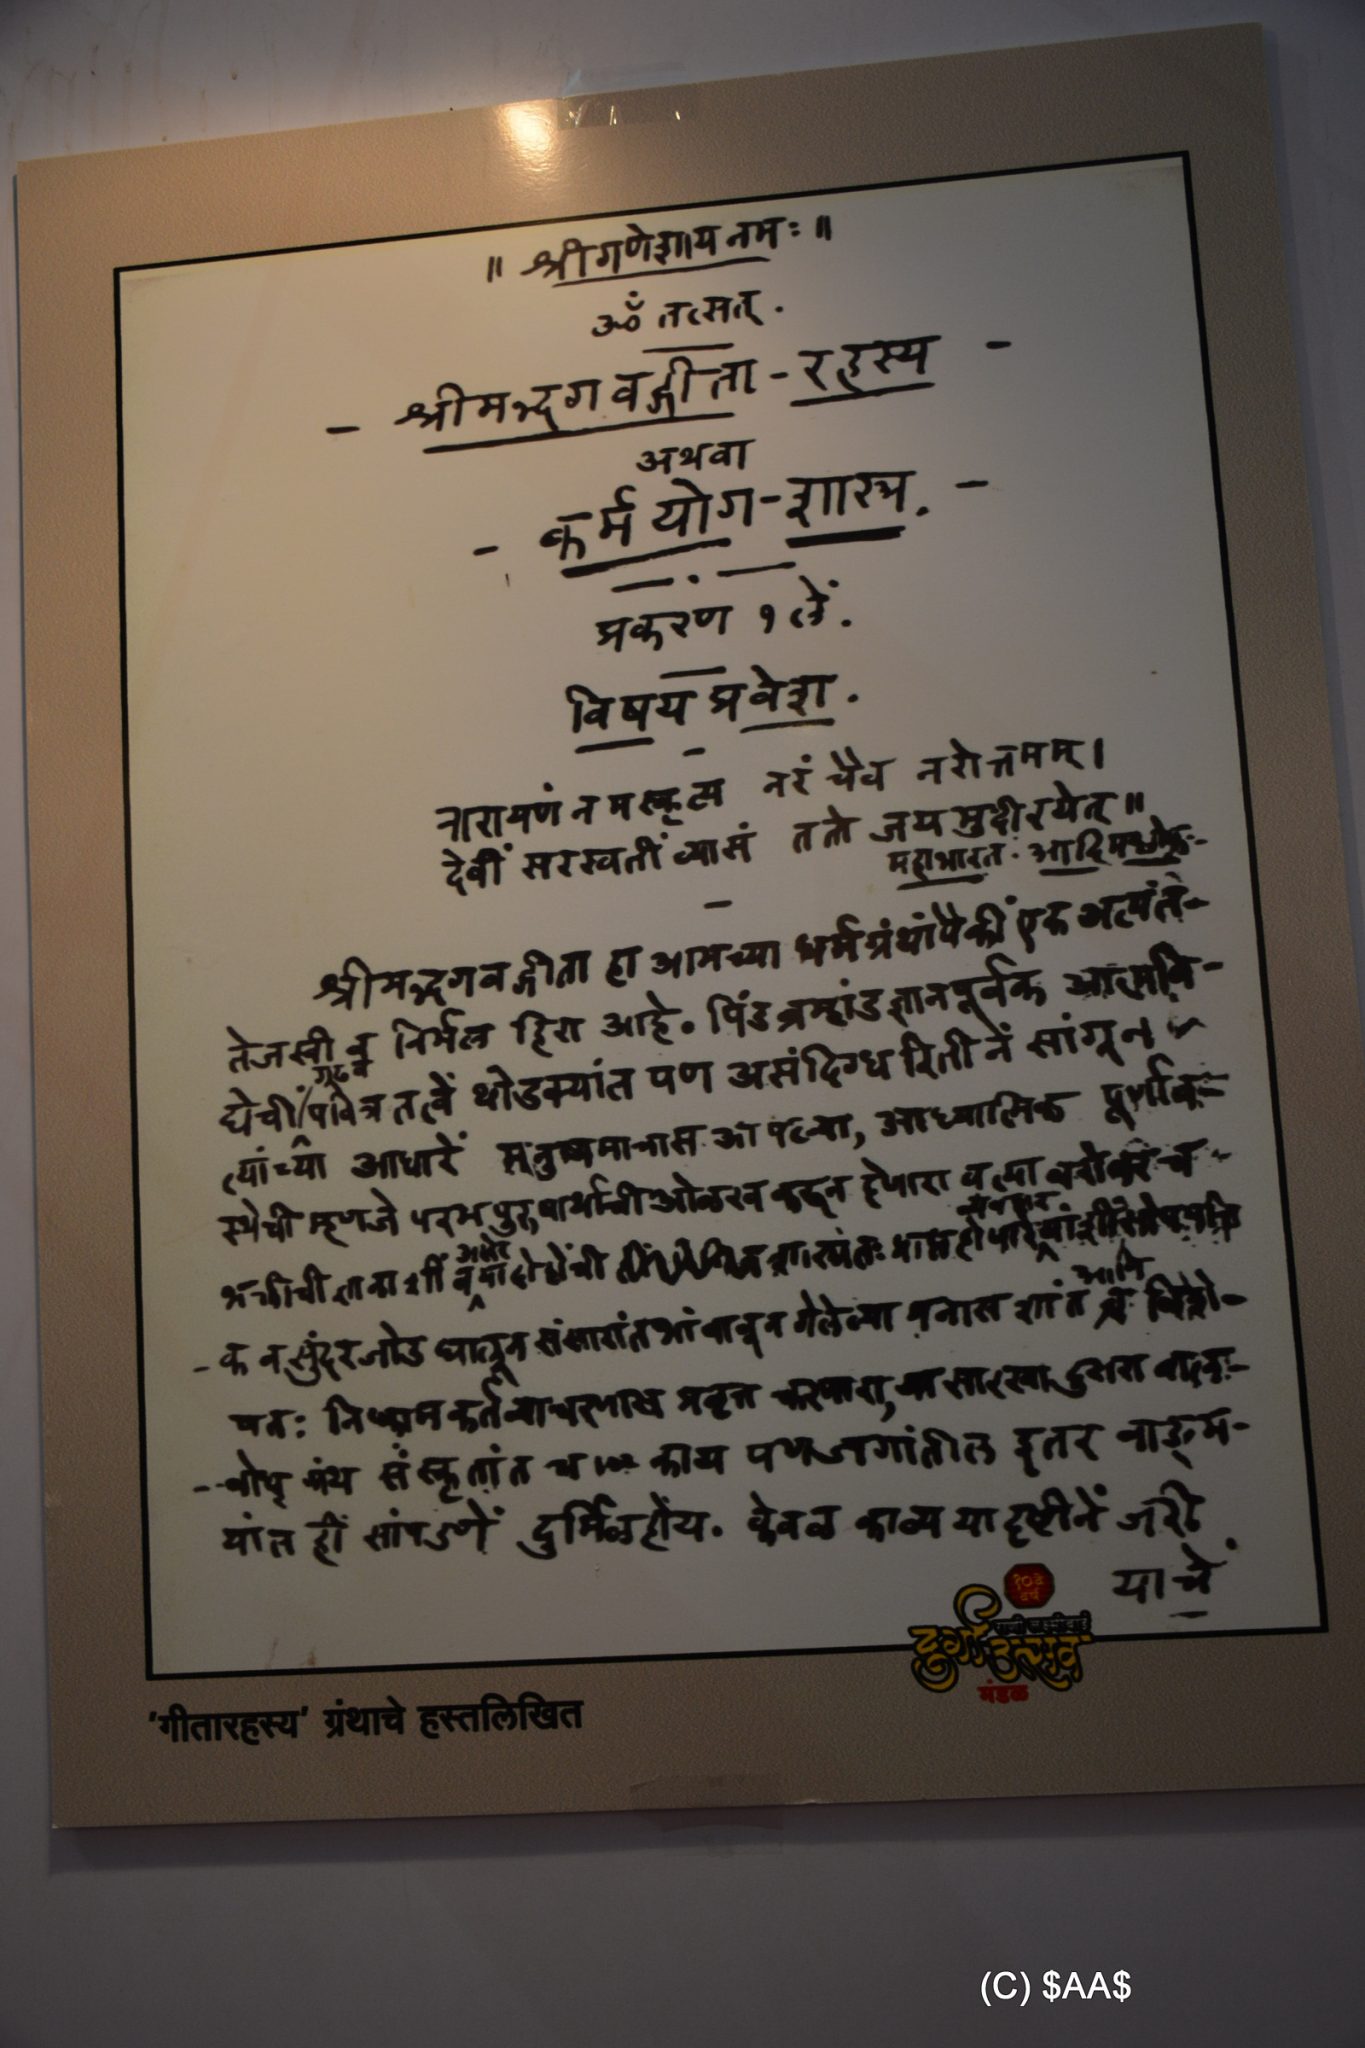 ॥ श्रीगणेशाय नमः ॥
ॐ तत्सत्.
- श्रीमद्भगवद्गीता - रहस्य -
अथवा
- कर्मयोग - शास्त्र. -
प्रकरण १ लें.
विषय प्रवेश.
नारायणं नमस्कृत्य नरं चैव नरोत्तमम् ।
देवीं सरस्वतीं व्यासं ततो जयमुदीरयेत् ॥
महाभारत. आदिम श्लोकः
श्रीमद्भगवद्गीता हा आमच्या धर्मग्रंथांपैकीं एक अत्यंत-
तेजस्वी व निर्मल हिरा आहे. पिंडब्रम्हांडज्ञानपूर्वक आत्मवि-
गूढ व
द्येचीं पवित्र तत्वें थोडक्यांत पण असंदिग्ध रितीनें सांगून
त्यांच्या आधारें मनुष्यमात्रास आपल्या, आध्यात्मिक पूर्णाव-
स्थेची म्हणजे परमपुरुषार्थाची ओळख करून देणारा व त्या बरोबरच
भक्तीची ज्ञानाशीं व या दोहोंची
आणि
क व सुंदर जोड घालून संसारांत भांबावून गेलेल्या मनास शांत विशे-
षतः निष्काम कर्तव्याचरणास प्रवृत्त करणारा, या सारखा दुसरा बालबो-
- बोध ग्रंथ संस्कृतांत च काय पण जगांतील इतर वाङ्म-
यांत हीं सांपडणें दुर्मिळ होय. केवळ काव्य या दृष्टीनें जरी
याचें
१०३ वे वर्ष
दुर्गा उत्सव
मंडळ
'गीतारहस्य' ग्रंथाचे हस्तलिखित
(C) $AA$